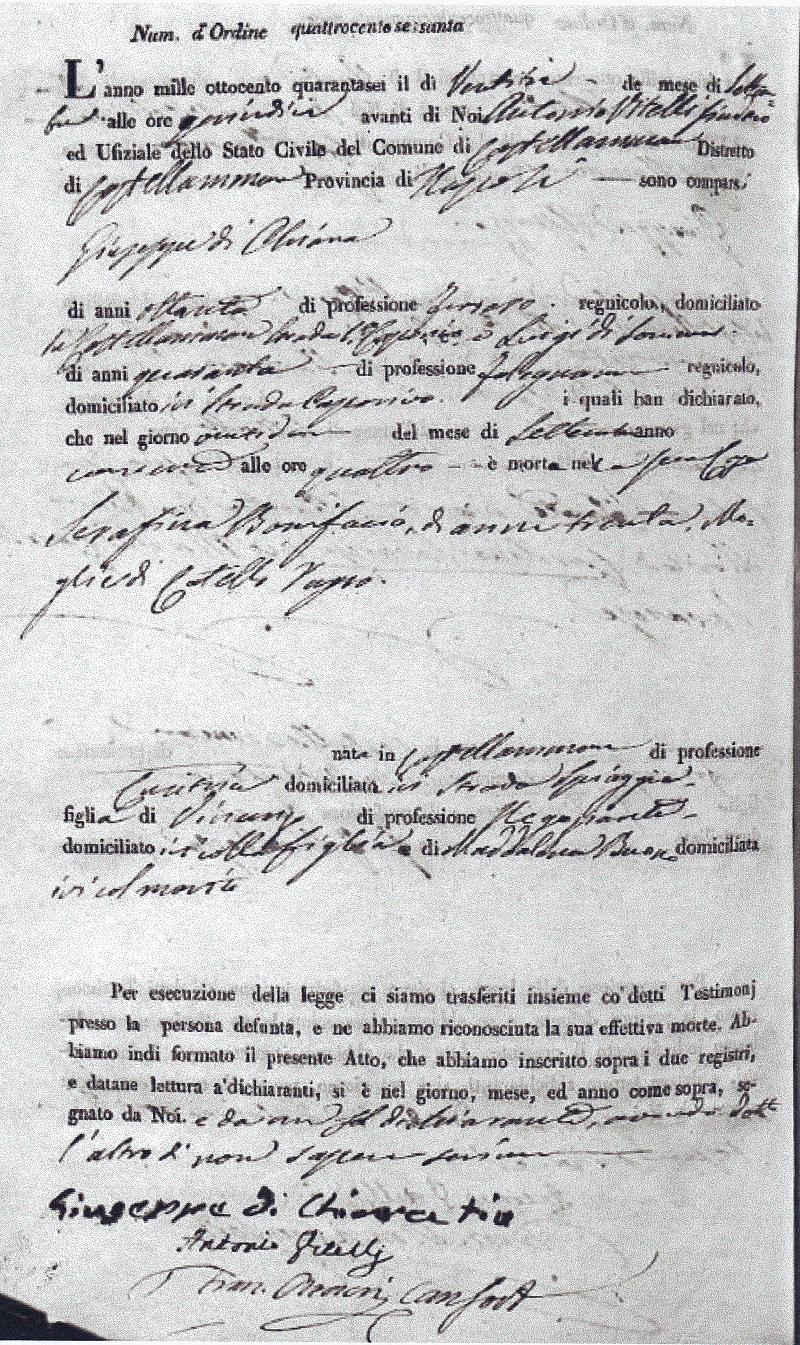 Num. d'Ordine quattrocento sessanta
L'anno mille ottocento quarantasei il di Ventitrè de mese di Settem
bre alle ore quindici avanti di Noi Antonio Vitelli Sindaco
ed Ufiziale dello Stato Civile del Comune di Castellammare Distretto
di Castellammare Provincia di Napoli sono comparsi
Giuseppe di
di anni ottanta di professione regnicolo, domiciliato
in Castellammare Strada e Luigi di
di anni quaranta di professione falegname regnicolo,
domiciliato ivi Strada i quali han dichiarato,
che nel giorno del mese di Settembre anno
corrente alle ore quattro è morta nella sua Casa
Serafina Bonifacio, di anni trenta, Mo-
glie di Catello
nata in Castellammare di professione
domiciliata in Strada Spiaggia
figlia di Vincenzo di professione Negoziante
domiciliato ivi colla figlia e di Maddalena domiciliata
ivi col marito
Per esecuzione della legge ci siamo trasferiti insieme co' detti Testimonj
presso la persona defunta, e ne abbiamo riconosciuta la sua effettiva morte. Ab-
biamo indi formato il presente Atto, che abbiamo inscritto sopra i due registri,
e datane lettura a' dichiaranti, si è nel giorno, mese, ed anno come sopra, se-
gnato da Noi. e da un sol dichiarante, avendo detto
l'altro di non sapere scrivere
Giuseppe di
Antonio Vitelli